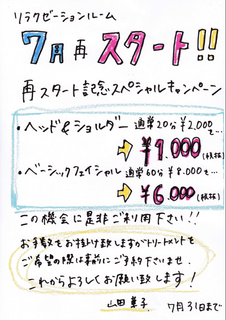 リラクゼーションルーム
7月再スタート!!
再スタート記念スペシャルキャンペーン
・ヘッド&ショルダー 通常20分 ¥2,000で…
⇒ ¥1,000(税抜)
・ベーシックフェイシャル 通常60分 ¥8,000で…
⇒ ¥6,000(税抜)
この機会に是非ご利用下さい!!
お手数をお掛け致しますがトリートメントを
ご希望の際は事前にご予約下さいませ。
これからよろしくお願い致します!
山田 7月31日まで